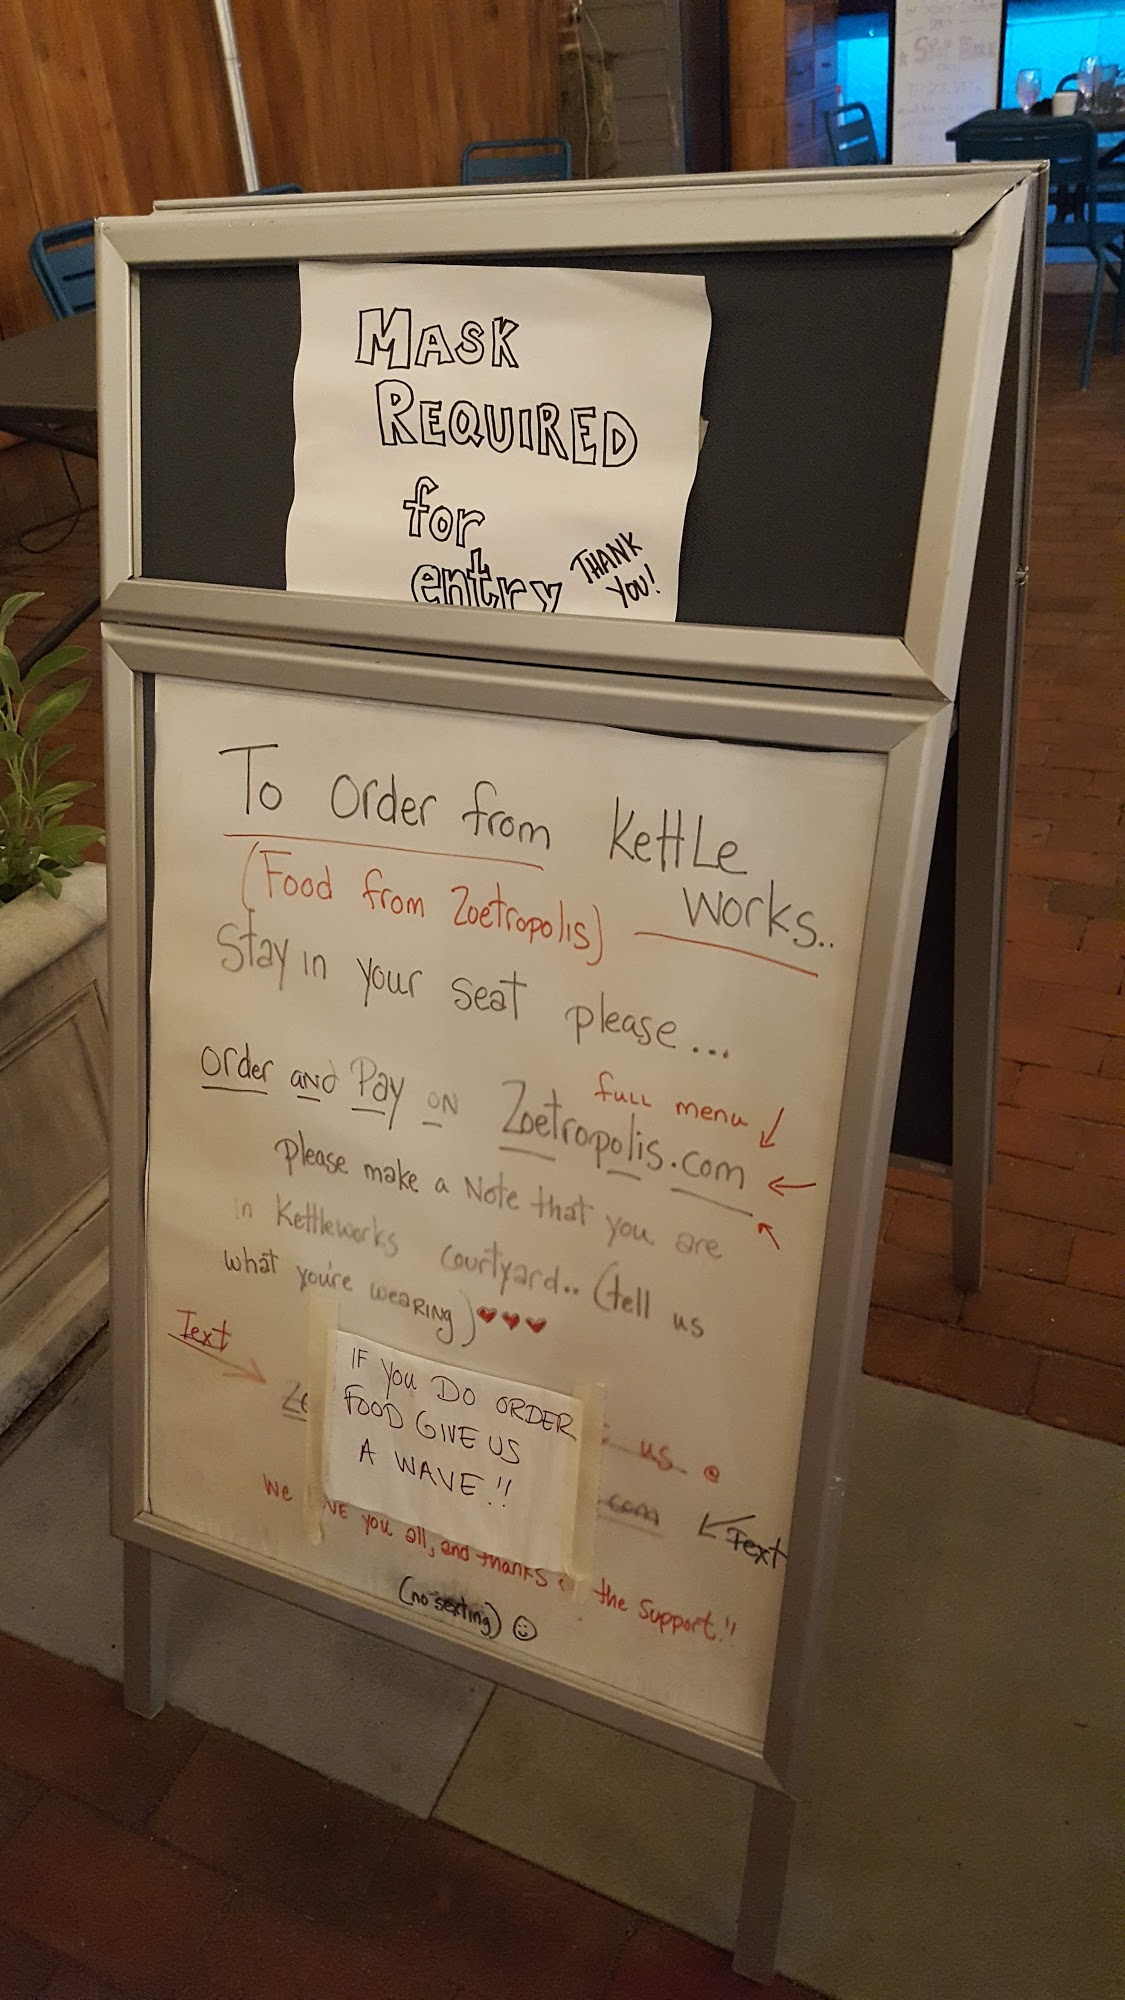 MASK
REQUIRED
for
entry
THANK
YOU!
To Order from Kettle
Works..
(Food from Zoetropolis)
Stay in your seat please...
Order and Pay on Zoetropolis.com
full menu
please make a Note that you are
in Kettleworks courtyard.. (tell us
what you're wearing) ♥♥♥
Text
IF YOU DO ORDER
FOOD GIVE US
A WAVE!!
us @
.com
Text
We you all, and thanks the support!!
(no sexting) ☺